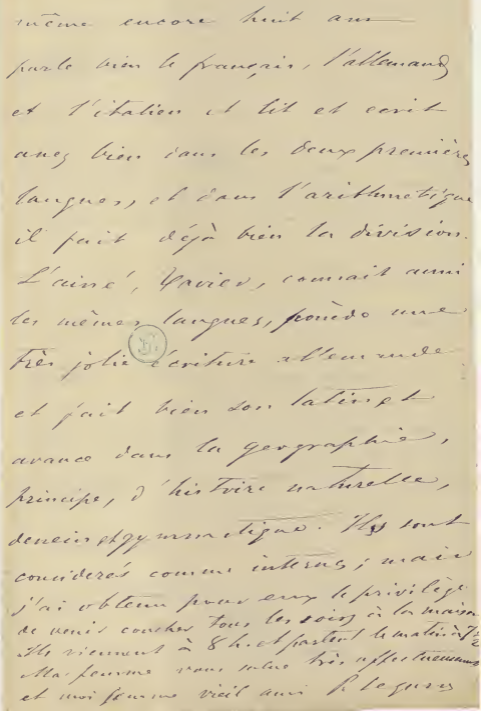 même encore huit ans
parle bien le français, l'allemand
et l'italien et lit et ecrit
assez bien dans les deux premières
langues, et dans l'arithmetique
il fait déjà bien la division.
L'ainé, Xavier, connait aussi
les mêmes langues, possède une
très jolie écriture allemande
et fait bien son latin et
avance dans la geographie,
principe, d'histoire naturelle,
dessin et gymnastique. Ils sont
considerés comme internes; mais
j'ai obtenu pour eux le privilège
de venir coucher tous les soirs à la maison
Ils viennent à 8 h. et partent le matin à 7
Ma femme vous salue très affectueusement
et moi comme vieil ami